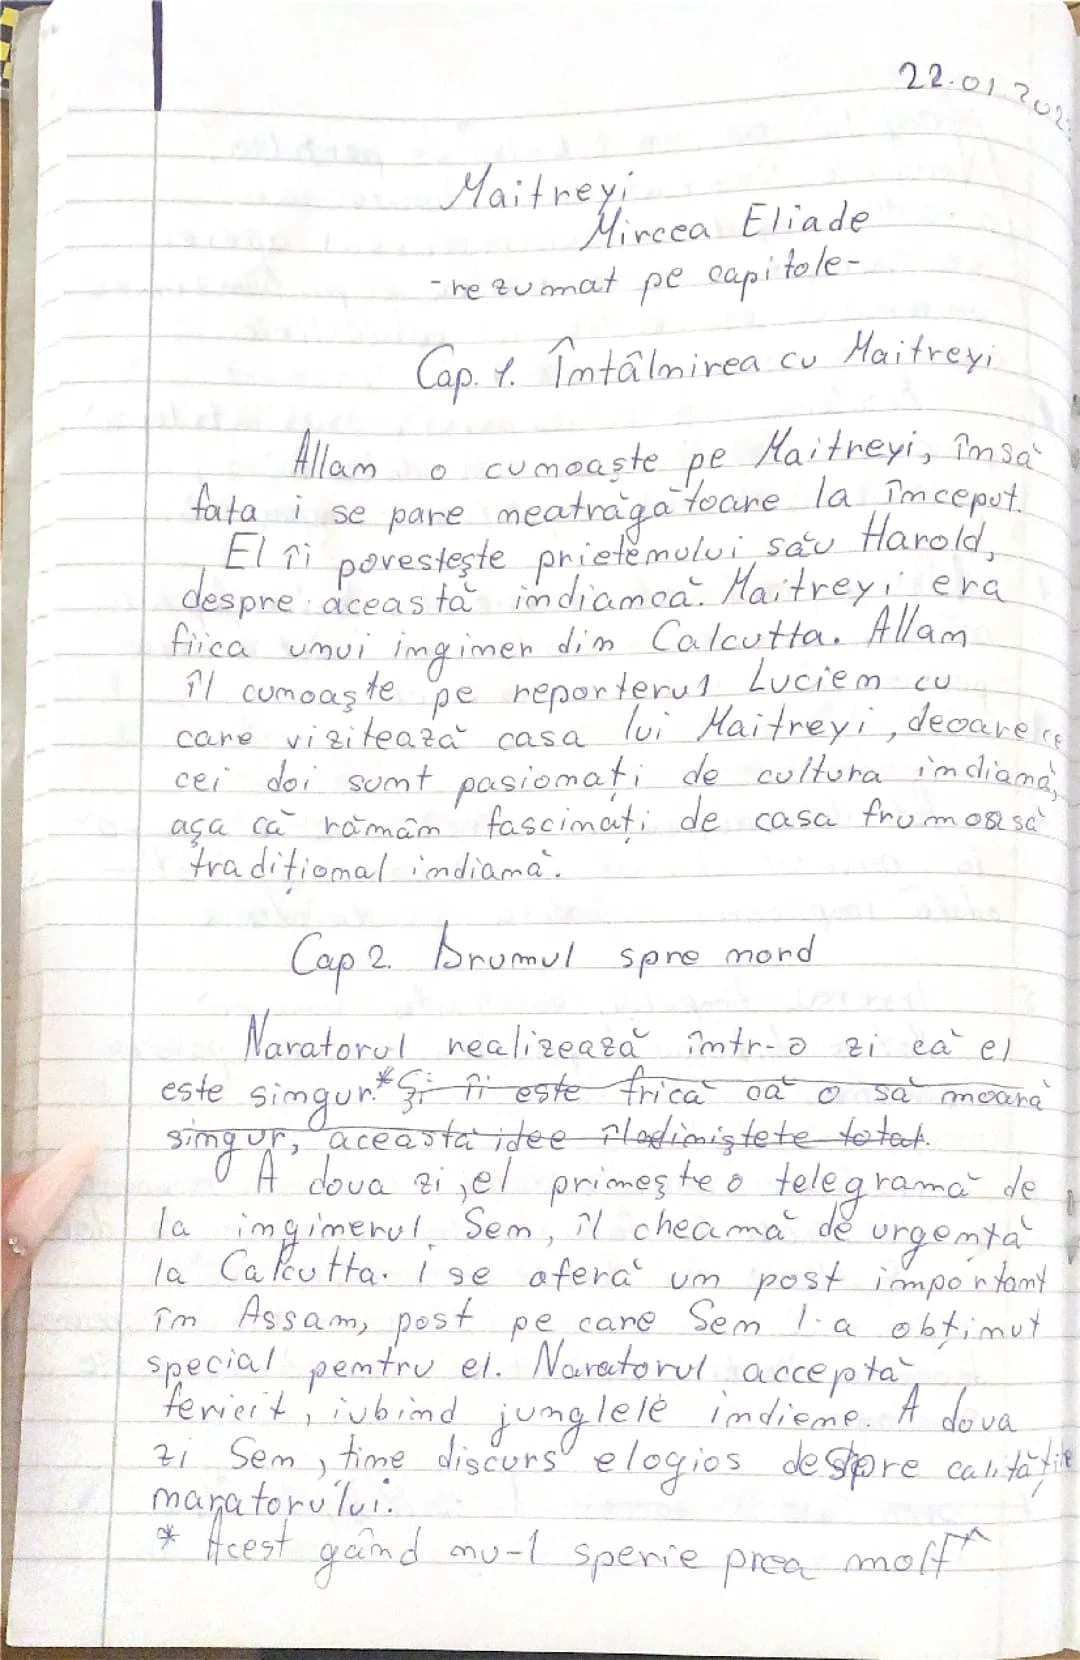 22.01.202
Maitreyi
Mircea Eliade
-rezumat pe capitole-
Cap. 1. Întâlnirea cu Maitreyi
Allan o cunoaște pe Maitreyi, însă
fata i se pare neatrăgătoare la început.
El îi povestește prietenului său Harold,
despre această indiancă. Maitreyi era
fiica unui inginer din Calcutta. Allan
îl cunoaște pe reporterul Lucien cu
care vizitează casa lui Maitreyi, deoarece
cei doi sunt pasionați de cultura indiană,
așa că rămân fascinați de casa frumoasă
tradițional indiană.
Cap 2. Drumul spre nord
Naratorul realizează într-o zi că el
este singur.* Și îi este frică că o să moară
singur, această idee îl totat.
A doua zi, el primește o telegramă de
la inginerul Sen, îl cheamă de urgență
la Calcutta. i se oferă un post important
în Assam, post pe care Sen l-a obținut
special pentru el. Naratorul acceptă
fericit, iubind junglele indiene. A doua
zi Sen, tine discurs elogios despre calitățile
naratorului.
* Acest gând nu-l sperie prea mult *